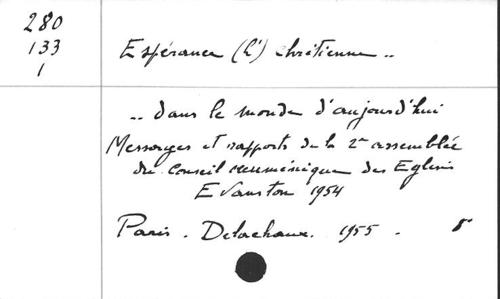 280
133
1
Espérance (L') chrétienne ..
.. dans le monde d'aujourd'hui
Messages et rapports de la 2e assemblée
du Conseil œcuménique des Eglises
Evanston 1954
Paris. Delachaux. 1955 . 8°